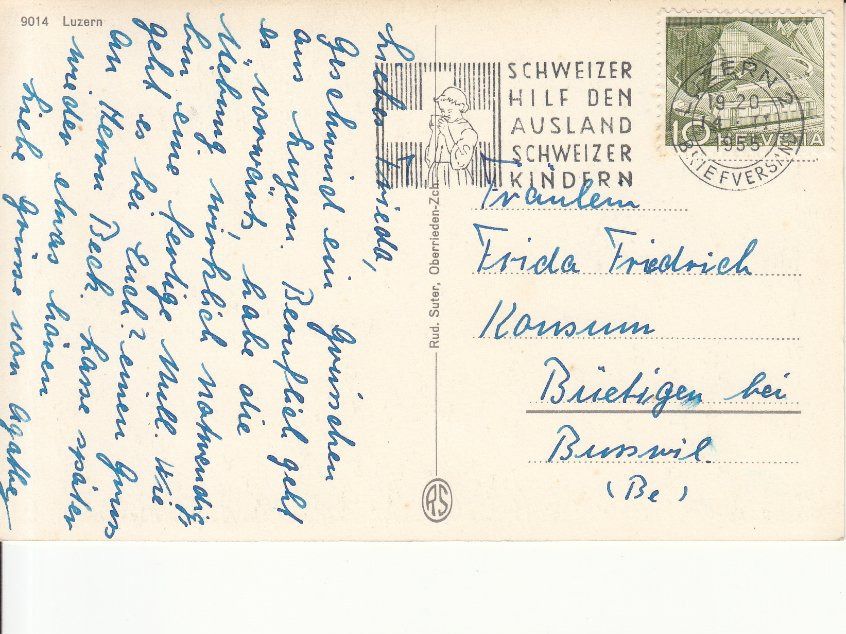 9014 Luzern
Lieber Frieda,
Geschwind ein Grüsschen
aus Luzern. Beruflich geht
es vorwärts, habe die
Uebung wirklich notwendig,
bin eine fertige Null. Wie
geht es bei Euch? einen Gruss
an Herrn Beck. Lasse später
wieder etwas hören
Liebe Grüsse von Agathe
Rud. Suter, Oberrieden-Zch.
RS
SCHWEIZER
HILF DEN
AUSLAND
SCHWEIZER
KINDERN
LUZERN 2
19-20
1955
BRIEFVERSAND
10 HELVETIA
Fräulein
Frida Friedrich
Konsum
Büetigen bei
Busswil.
(Be)